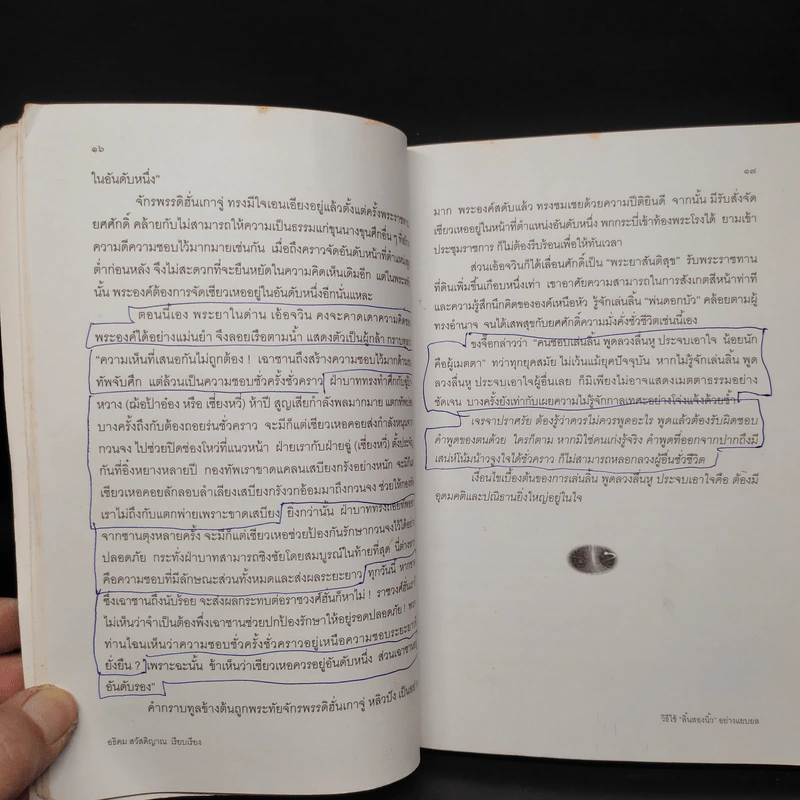 ๑๖
ในอันดับหนึ่ง"
จักรพรรดิฮั่นเกาจู่ ทรงมีใจเอนเอียงอยู่แล้วตั้งแต่ครั้งพระราชทาน
ยศศักดิ์ คล้ายกับไม่สามารถให้ความเป็นธรรมแก่ขุนนางขุนศึกอื่น ๆ ที่สร้าง
ความดีความชอบไว้มากมายเช่นกัน เมื่อถึงคราวจัดอันดับหน้าที่ตำแหน่งสูง
ต่ำก่อนหลัง จึงไม่สะดวกที่จะยืนหยัดในความคิดเห็นเดิมอีก แต่ในพระทัย
นั้น พระองค์ต้องการจัดเซียวเหออยู่ในอันดับหนึ่งอีกนั่นแหละ
ตอนนี้เอง พระยาในด่าน เอ้อจวิน คงจะคาดเดาความคิดของ
พระองค์ได้อย่างแม่นยำ จึงลอยเรือตามน้ำ แสดงตัวเป็นผู้กล้า กราบทูลว่า
"ความเห็นที่เสนอกันไม่ถูกต้อง ! เฉาชานถึงสร้างความชอบไว้มากด้าน
ทัพจับศึก แต่ล้วนเป็นความชอบชั่วครั้งชั่วคราว ฝ่าบาททรงทำศึกกับฌ้อ
หวาง (ฌ้อป้าอ๋อง หรือ เซี่ยงหวี่) ห้าปี สูญเสียกำลังพลมากมาย แตกทัพ
บางครั้งถึงกับต้องถอยร่นชั่วคราว จะมีก็แต่เซียวเหอคอยส่งกำลังหนุนจาก
กวนจง ไปช่วยปิดช่องโหว่ที่แนวหน้า ฝ่ายเรากับฝ่ายฉู่ (เซี่ยงหวี่) ตั้งประจัญ
กันที่อิ๋งหยางหลายปี กองทัพเราขาดแคลนเสบียงกรังอย่างหนัก จะมีก็แต่
เซียวเหอคอยลักลอบลำเลียงเสบียงกรังวกอ้อมมาถึงกวนจง ช่วยให้กองทัพ
เราไม่ถึงกับแตกพ่ายเพราะขาดเสบียง ยิ่งกว่านั้น ฝ่าบาททรงถอยทัพออก
จากซานตุงหลายครั้ง จะมีก็แต่เซียวเหอช่วยป้องกันรักษากวนจงไว้ได้อย่าง
ปลอดภัย กระทั่งฝ่าบาทสามารถชิงชัยโดยสมบูรณ์ในท้ายที่สุด นี่ต่างหาก
คือความชอบที่มีลักษณะส่วนทั้งหมดและส่งผลระยะยาว ทุกวันนี้ หากขาด
ซึ่งเฉาชานถึงนับร้อย จะส่งผลกระทบต่อราชวงศ์ฮั่นก็หาไม่ ! ราชวงศ์ฮั่น
ไม่เห็นว่าจำเป็นต้องพึ่งเฉาชานช่วยปกป้องรักษาให้อยู่รอดปลอดภัย !
ท่านไฉนเห็นว่าความชอบชั่วครั้งชั่วคราวอยู่เหนือความชอบระยะยาว
ยั่งยืน ? เพราะฉะนั้น ข้าเห็นว่าเซียวเหอควรอยู่อันดับหนึ่ง ส่วนเฉาชานอยู่
อันดับรอง"
คำกราบทูลข้างต้นถูกพระทัยจักรพรรดิฮั่นเกาจู่ หลิวปัง เป็นอย่าง
อธิคม สวัสดิญาณ เรียบเรียง
๑๗
มาก พระองค์สดับแล้ว ทรงชมเชยด้วยความปีติยินดี จากนั้น มีรับสั่งจัด
เซียวเหออยู่ในหน้าที่ตำแหน่งอันดับหนึ่ง พกกระบี่เข้าท้องพระโรงได้ ยามเข้า
ประชุมราชการ ก็ไม่ต้องรีบร้อนเพื่อให้ทันเวลา
ส่วนเอ้อจวินก็ได้เลื่อนศักดิ์เป็น "พระยาสันติสุข" รับพระราชทาน
ที่ดินเพิ่มขึ้นเกือบหนึ่งเท่า เขาอาศัยความสามารถในการสังเกตสีหน้าท่าที
และความรู้สึกนึกคิดขององค์เหนือหัว รู้จักเล่นลิ้น "พ่นดอกบัว" คล้อยตามผู้
ทรงอำนาจ จนได้เสพสุขกับยศศักดิ์ความมั่งคั่งชั่วชีวิตเช่นนี้เอง
ขงจื๊อกล่าวว่า "คนชอบเล่นลิ้น พูดลวงลื่นหู ประจบเอาใจ น้อยนัก
คือผู้เมตตา" ทว่าทุกยุคสมัย ไม่เว้นแม้ยุคปัจจุบัน หากไม่รู้จักเล่นลิ้น พูด
ลวงลื่นหู ประจบเอาใจผู้อื่นเลย ก็มิเพียงไม่อาจแสดงเมตตาธรรมอย่าง
ชัดเจน บางครั้งยังเท่ากับเผยความไม่รู้จักกาลเทศะอย่างโจ่งแจ้งด้วยซ้ำ
เจรจาปราศรัย ต้องรู้ว่าควรไม่ควรพูดอะไร พูดแล้วต้องรับผิดชอบ
คำพูดของตนด้วย ใครก็ตาม หากมิใช่คนเก่งรู้จริง คำพูดที่ออกจากปากถึงมี
เสน่ห์โน้มน้าวจูงใจได้ชั่วคราว ก็ไม่สามารถหลอกลวงผู้อื่นชั่วชีวิต
เงื่อนไขเบื้องต้นของการเล่นลิ้น พูดลวงลื่นหู ประจบเอาใจคือ ต้องมี
อุดมคติและปณิธานยิ่งใหญ่อยู่ในใจ
วิธีใช้ "ลิ้นสองนิ้ว" อย่างแยบยล